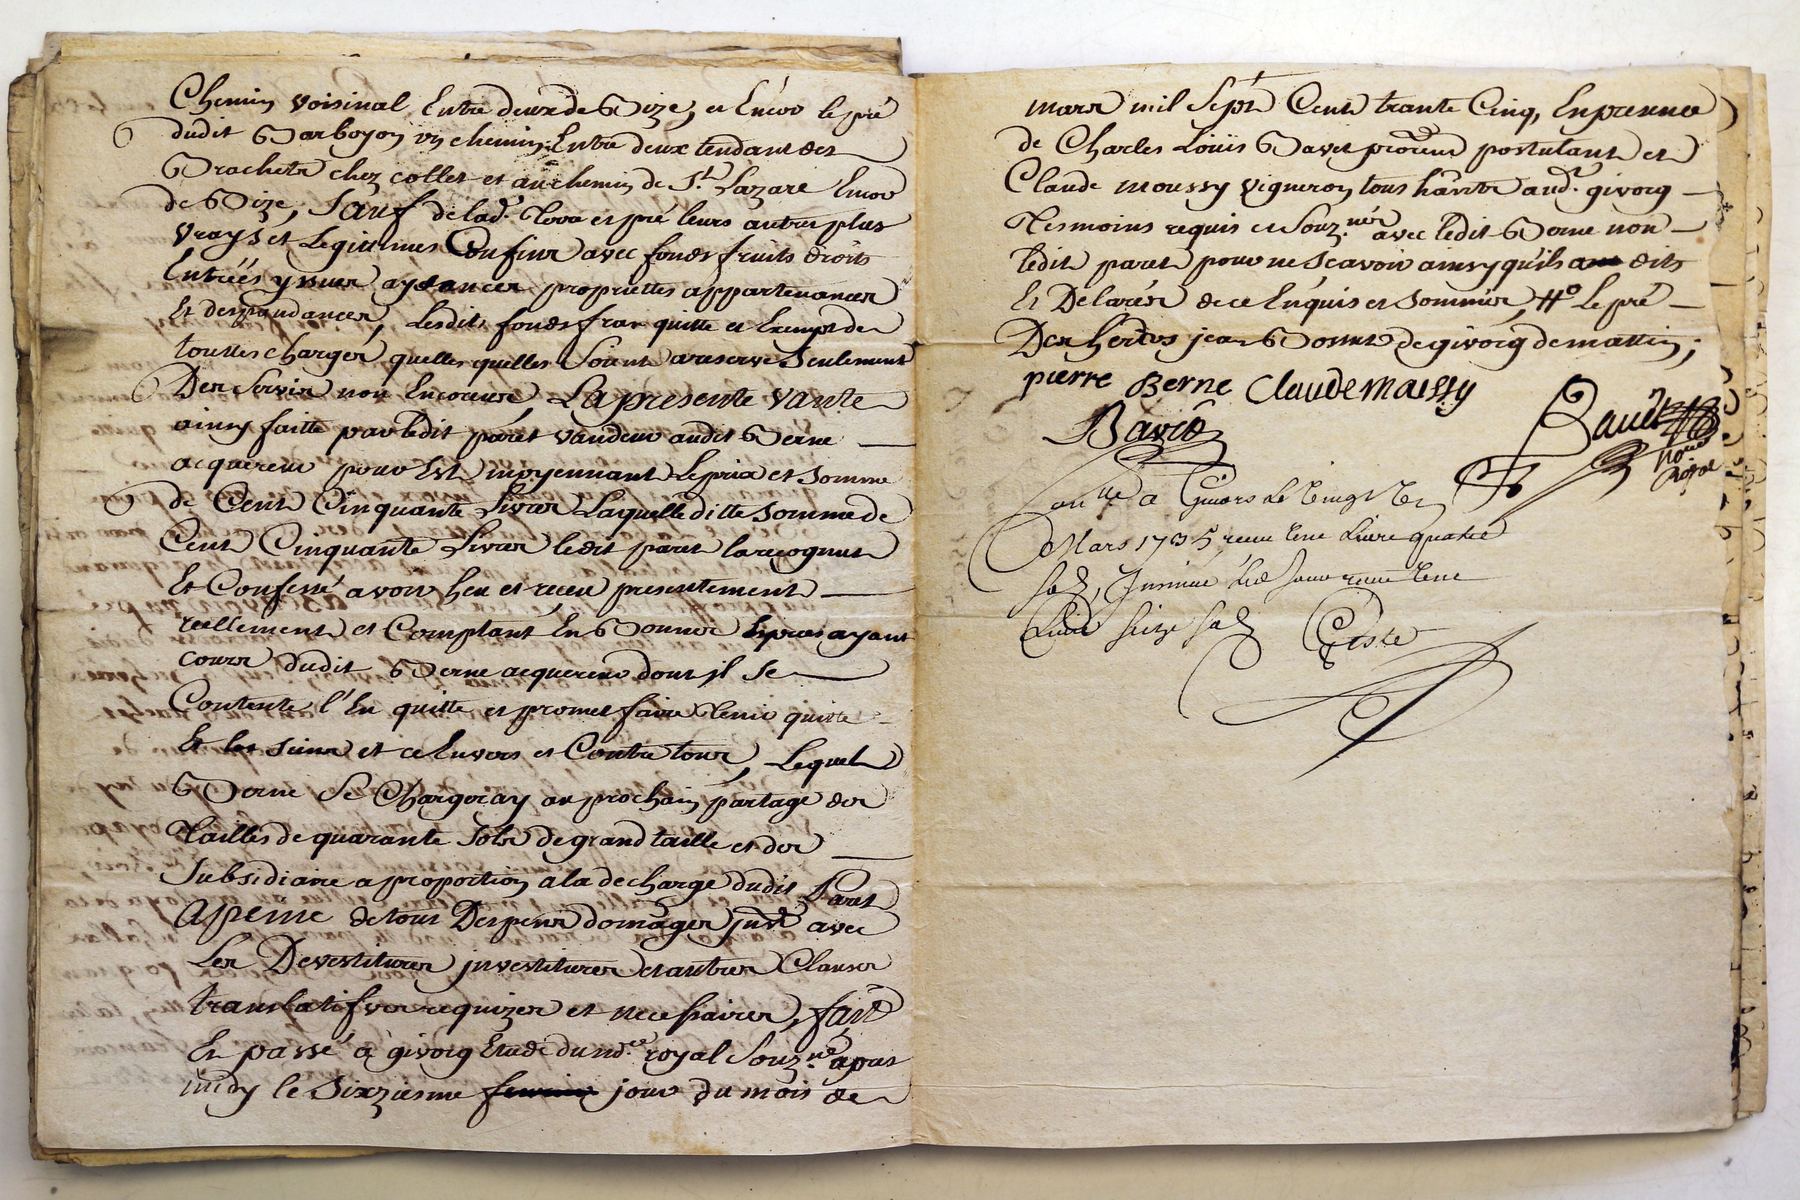 Chemin voisinal Entre deux de Bize, et Encor le pré
dudit Barboyon un chemin Entre deux tendant des
Brachets chez collet et au chemin de St. Lazare Encor
de Bize, Sauf de lad. Terre et pré leurs autres plus
vrays et Legitimes Confins avec fonds fruits droits
Entrées yssues aysances proprietes appartenances
Et despandances, Lesdits fonds franc quitte et Exempt de
touttes charges quelles quelles Soient a reserve Seulement
Des Servis non Encourus, La presente vante
ainsy faitte par ledit paret vandeur audit Berne
acquereur pour Et moyennant Le prix et Somme
de Cent Cinquante Livres Laquelle ditte Somme de
Cent Cinquante Livres ledit paret la recognut
Et Confessé avoir heu et receu presentement
reellement et Comptant En Bonnes Especes ayant
cours dudit Berne acquereur dont il Se
Contente l'En quitte et promet faire tenir quitte
Et les Siens et ce Envers et Contre tous, Lequel
Berne Se Chargeray au prochain partage des
Tailles de quarante Sols de grand taille et des
Subsidiaire a proportion a la decharge dudit Paret
Apeine de tous Despens domages avec
Les Devestitures investitures et autres Clauses
translatifves requizes et necessaires, fait
Et passé à givorg Etude du nore. royal Souz.né apres
midy le Sixziesme jour du mois de
mars mil Sept Cent trante Cinq, En presence
de Charles Loüis Bavet procureur postulant et
Claude moussy vigneron tous hants aud. givorg
Tesmoins requis et Souz.nés avec ledit Berne non
ledit paret pour ne Scavoir ainsy qu'ils dits
Et Declarés de ce Enquis et Sommés, Le pré
Des hers jean Bonnet de givorg de mattin;
pierre Berne Claude Maissy
Baviè
Bavet
nore
Royal
a Givors Le Vingt
Mars 1735 receu une Livre quatre
sols, Insinué led jour receu une
Livre seize sols Coste